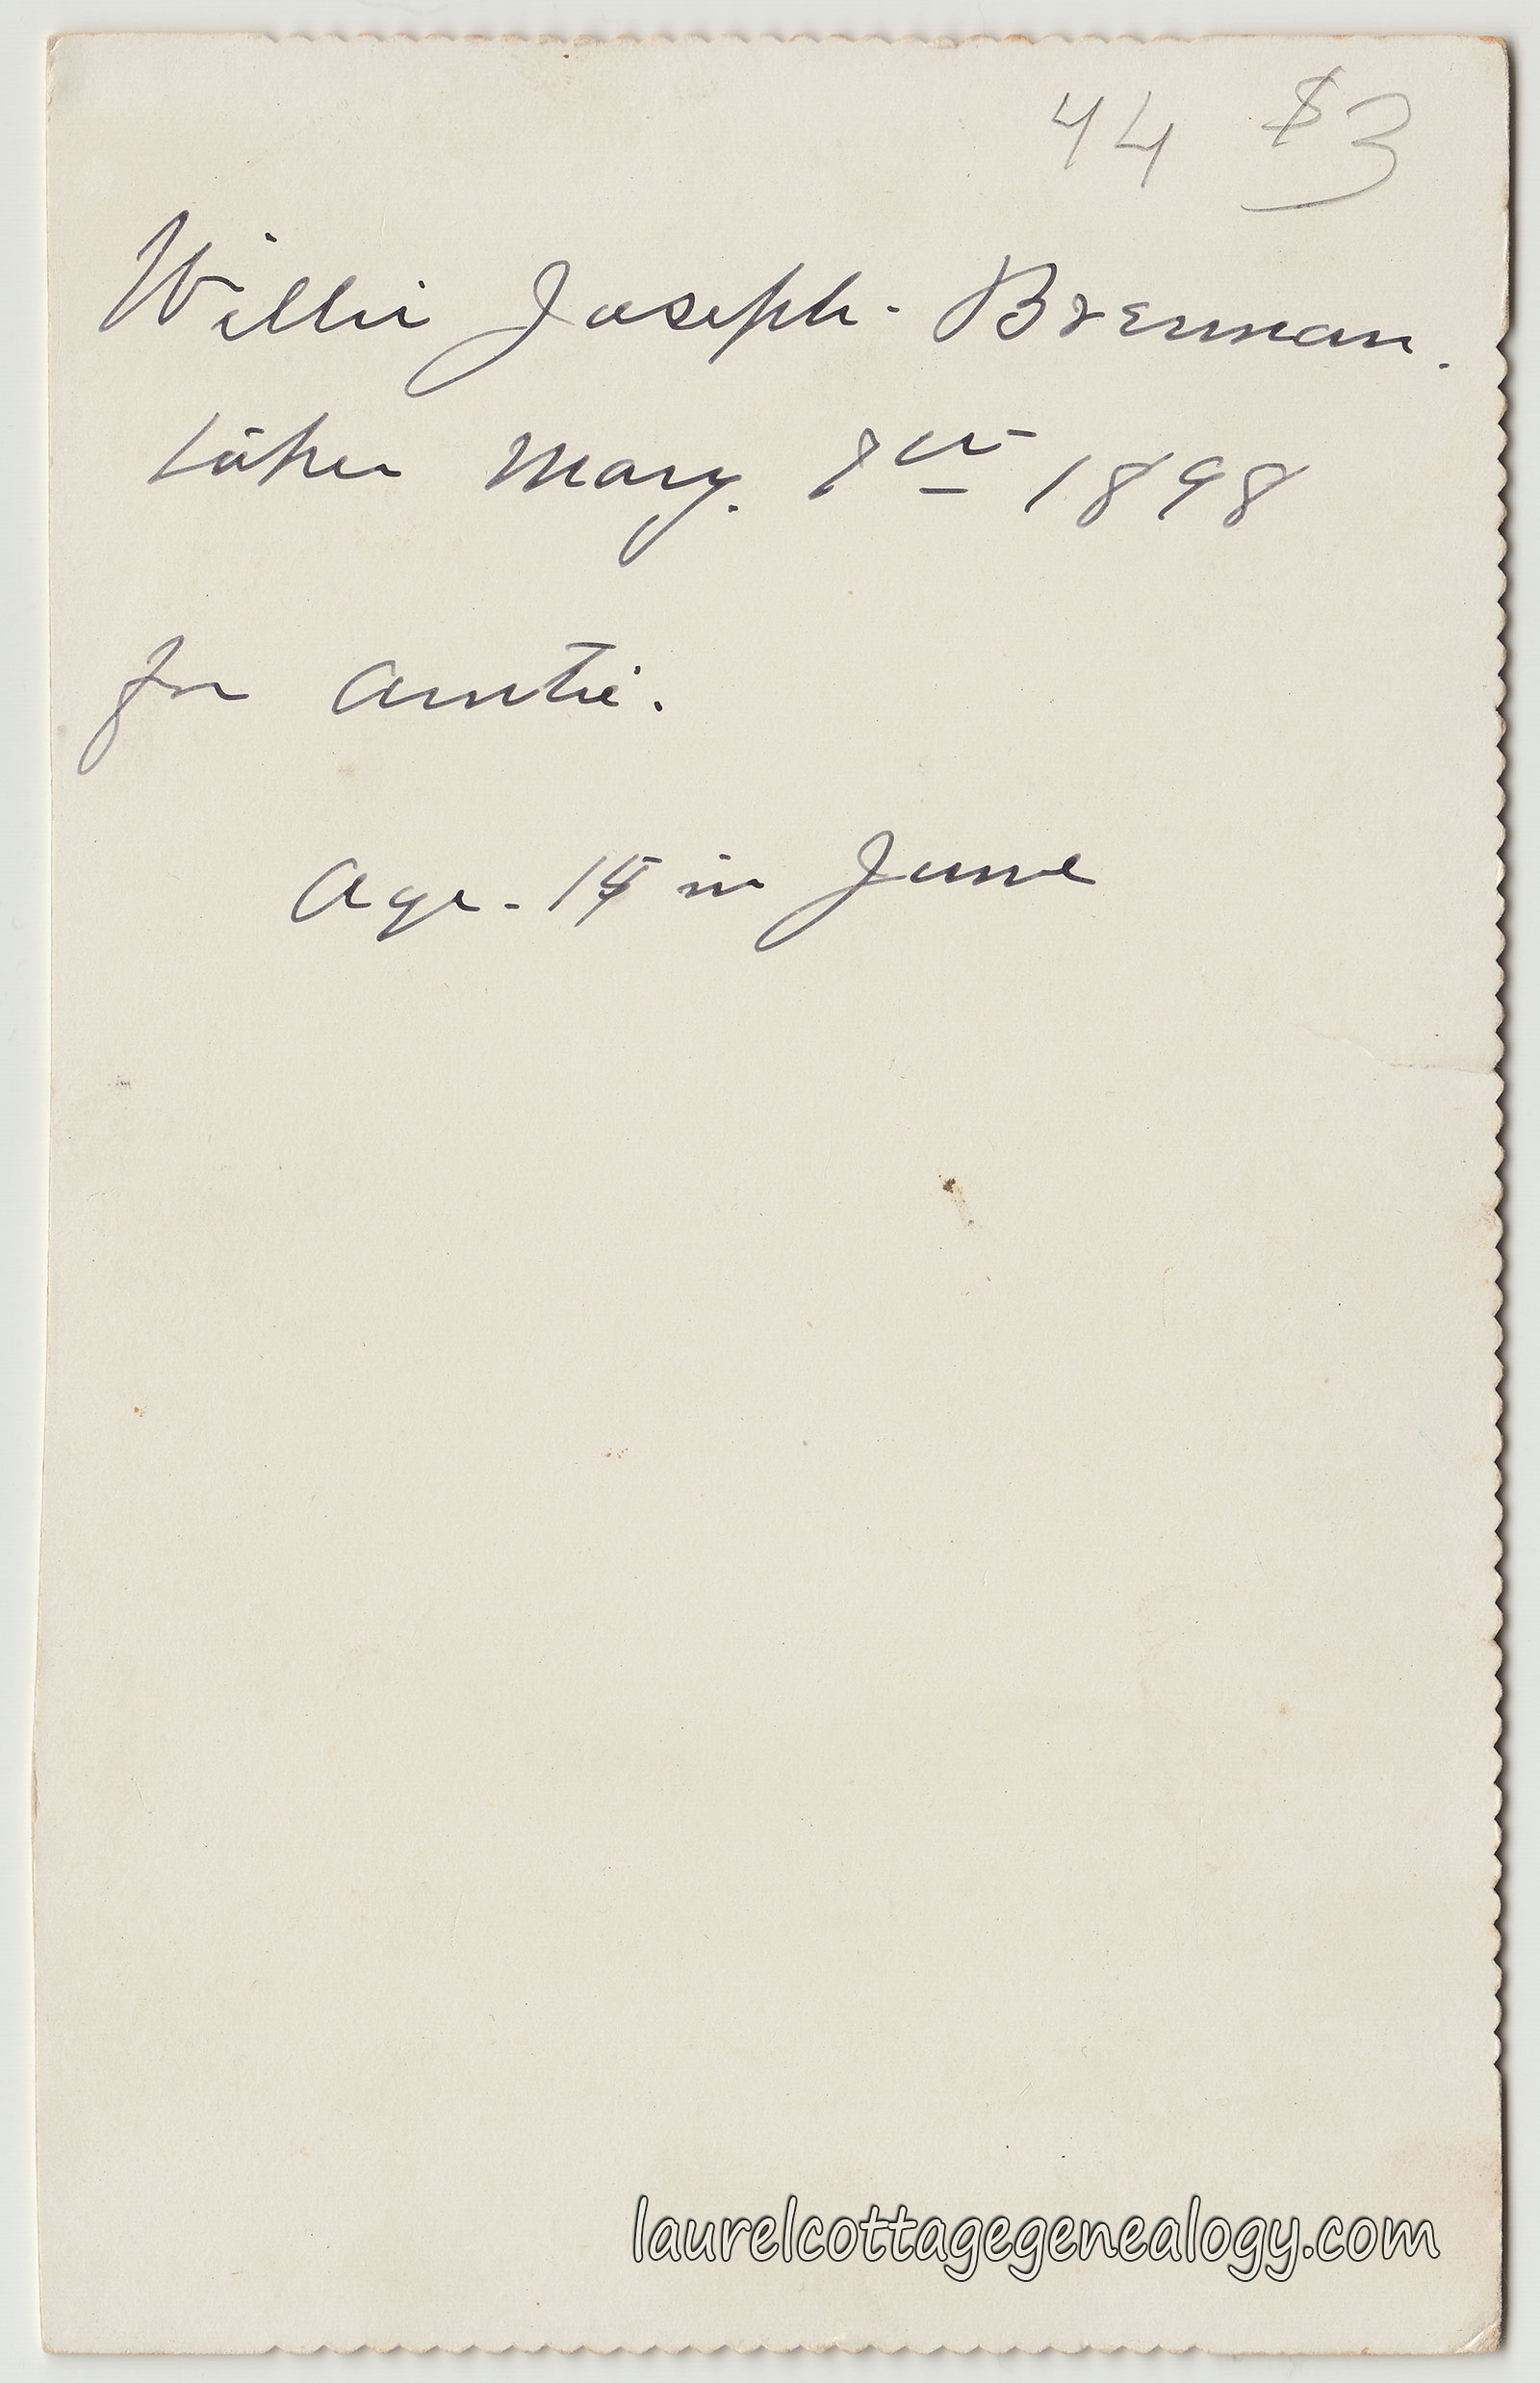 44 $3
Willie Joseph - Brennan.
taken May. 7th 1898
for Auntie.
Age - 15 in June
laurelcottagegenealogy.com